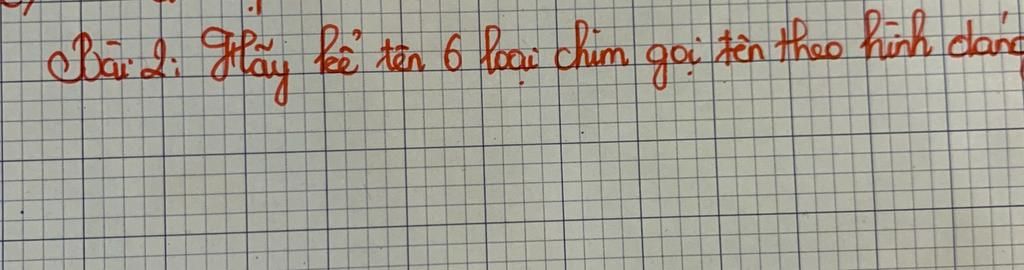 Bài 2: Hãy kể tên 6 loại chim gọi tên theo hình dáng